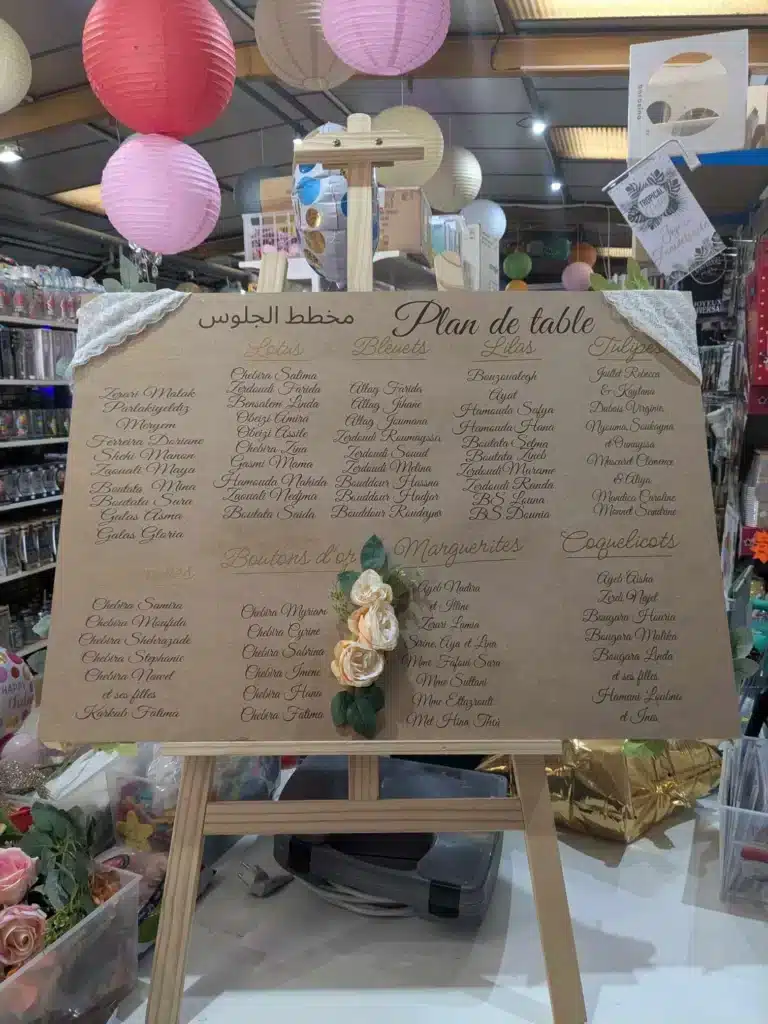 مخطط الجلوس
Plan de table
Zerari Malak
Parlakiyeldiz
Meryem
Ferreira Doriane
Shehi Manon
Zaouali Maya
Boutata Mina
Boutata Sara
Galas Asma
Galas Gloria
Lotus
Chebira Salima
Zerdoudi Farida
Bensalem Linda
Obeizi Amira
Obeizi Assile
Chebira Ziya
Gasmi Mama
Hamouda Nahida
Zaouali Nedjma
Boutata Saida
Bleuets
Allag Farida
Allag Jihane
Allag Joumana
Zerdoudi Roumayssa
Zerdoudi Souad
Zerdoudi Melina
Bouddour Hassna
Bouddour Hadjar
Bouddour Roudayna
Lilas
Bouzoualegh
Ayat
Hamouda Safya
Hamouda Hana
Boutata Selma
Boutata Lineb
Zerdoudi Marame
Zerdoudi Randa
BS. Louna
BS. Dounia
Tulipes
Jaillet Rebecca
& Kaylana
Dubois Virginie
Nyouma, Soukayna
et Oumayssa
Mascaret Clémence
& Aliya
Mendica Caroline
Monnet Sandrine
Chebira Samira
Chebira Moufida
Chebira Shehrazade
Chebira Stephanie
Chebira Nawel
et ses filles
Karkali Fatima
Boutons d'or
Chebira Myriam
Chebira Cyrine
Chebira Sabrina
Chebira Imene
Chebira Hana
Chebira Fatima
Marguerites
Ayeb Nadira
et Illine
Zerari Lamia
Sirine, Aya et Lina
Mme Fafoui Sara
Mme Sultani
Mme Ettazrouti
Met Hinn Thaï
Coquelicots
Ayeb Aisha
Zereli Najet
Bougara Houria
Bougara Malika
Bougara Linda
et ses filles
Hamani Loubna
et Ines
TROPICAL
JOYEUX
HAPPY